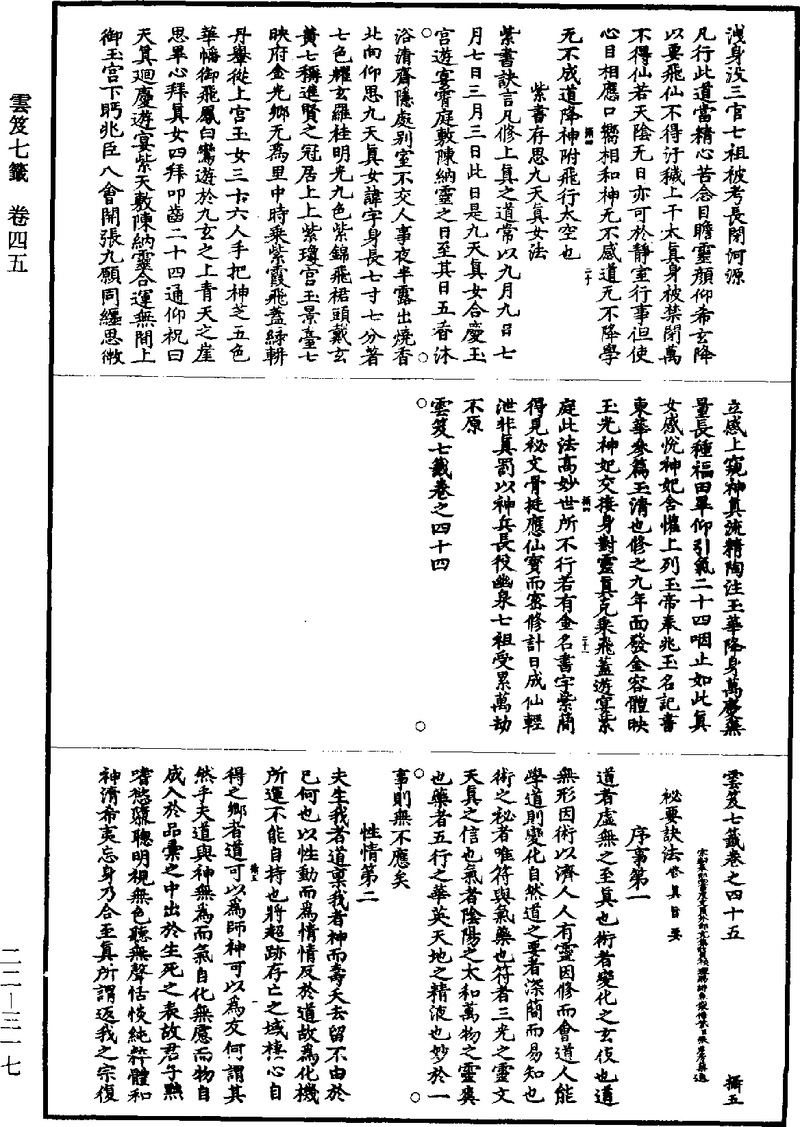 洩身沒三官七祖被考長閉河源
凡行此道當精心苦念目瞻靈顏仰希玄降
以要飛仙不得汙穢上干太真身被禁閉萬
不得仙若天陰无日亦可於靜室行事但使
心目相應口嚮相和神无不感道无不降學
无不成道降神附飛行太空也
紫書存思九天真女法
紫書訣言凡修上真之道常以九月九日七
月七日三月三日此日是九天真女合慶玉
宮遊宴霄庭敷陳納靈之日至其日五香沐
浴清齋隱處别室不交人事夜半露出燒香
北向仰思九天真女諱字身長七寸七分著
七色耀玄羅袿明光九色紫錦飛裙頭戴玄
黃七稱進賢之冠居上上紫瓊宮玉景臺七
映府金光鄉无為里中時乘紫霞飛蓋緑軿
丹轝從上宮玉女三十六人手把神芝五色
華幡御飛鳳白鸞遊於九玄之上青天之崖
思畢心拜真女四拜叩齒二十四通仰祝曰
天真廻慶遊宴紫天敷陳納靈合運無間上
御玉宮下眄兆臣八會開張九願同纏思微
立感上窺神真流精陶注玉華降身萬慶無
量長種福田畢仰引氣二十四咽止如此真
女感悅神妃含懽上列玉帝奉兆玉名記書
東華參篇玉清也修之九年面發金容體映
玉光神妃交接身對靈真克乘飛蓋遊宴紫
庭此法高妙世所不行若有金名書字紫簡
得見秘文骨挺應仙寶而密修計日成仙輕
泄非真罰以神兵長役幽泉七祖受累萬劫
不原
雲笈七籤卷之四十四
雲笈七籤卷之四十五
秘要訣法修真旨要
序事第一
道者虛無之至真也術者變化之玄伎也道
無形因術以濟人人有靈因修而會道人能
學道則變化自然道之要者深簡而易知也
術之秘者唯符與氣藥也符者三光之靈文
天真之信也氣者陰陽之太和萬物之靈爽
也藥者五行之華英天地之精液也妙於一
事則無不應矣
性情第二
夫生我者道稟我者神而壽夭去留不由於
己何也以性動而為情情反於道故為化機
所運不能自持也將超跡存亡之域棲心自
得之鄉者道可以為師神可以為友何謂其
然乎夫道與神無為而氣自化無慮而物自
成入於品彙之中出於生死之表故君子黜
嗜慾隳聰明視無色聽無聲恬惔純粹體和
神清希夷忘身乃合至真所謂返我之宗復
雲笈七籤 卷四五
二二—三一七